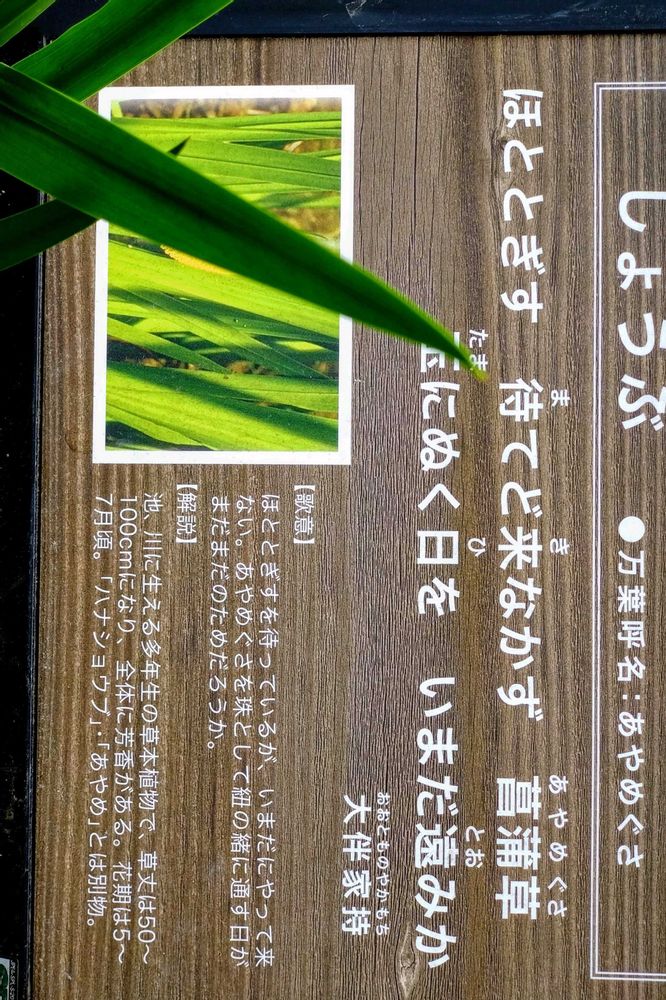 しょうぶ ●万葉呼名：あやめぐさ
ほととぎす 待てど来なかず 菖蒲草
ま き あやめぐさ
玉にぬく日を いまだ遠みか
たま ひ とお
おおとものやかもち
大伴家持
【歌意】
ほととぎすを待っているが、いまだにやって来
ない。あやめぐさを珠として紐の緒に通す日が
まだまだのためだろうか。
【解説】
池、川に生える多年生の草本植物で、草丈は50〜
100cmになり、全体に芳香がある。花期は5〜
7月頃。「ハナショウブ」・「あやめ」とは別物。